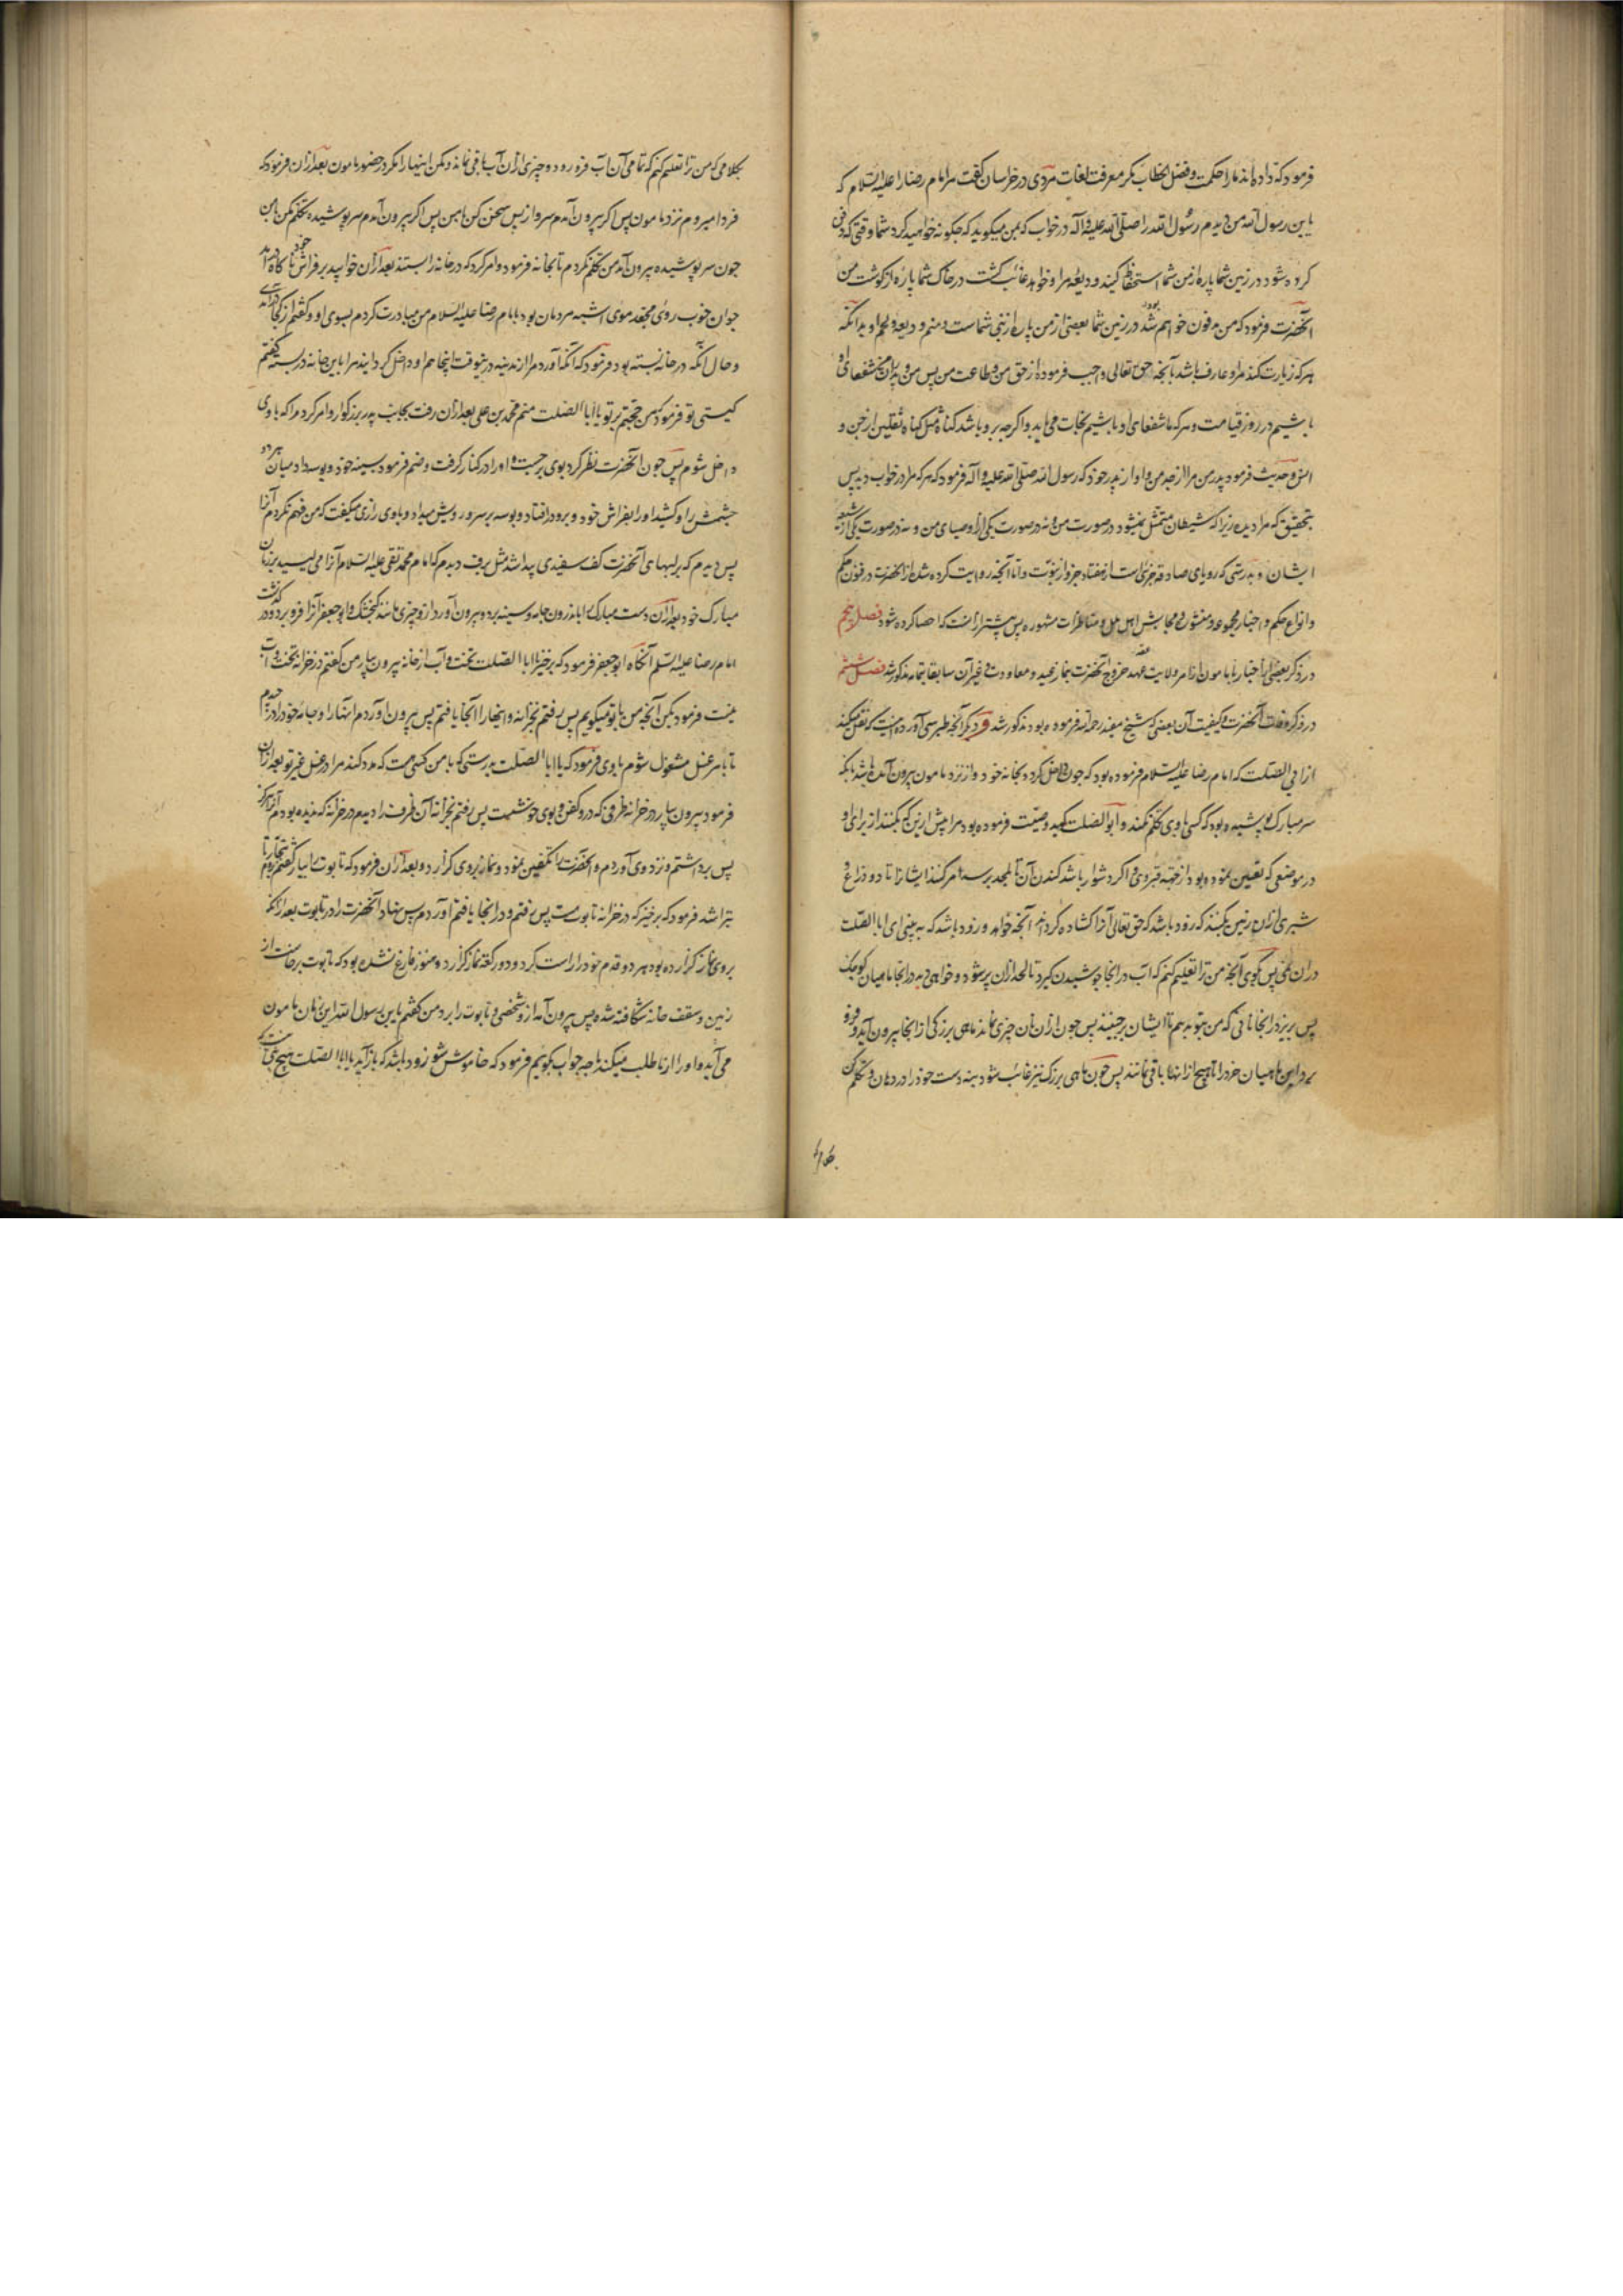 فرمود که داده‌اند ما را حکمت و فضل خطاب مکر معرفت لغات مردی در خراسان گفت مر امام رضا را علیه السلام که
یا بن رسول الله من دیدم رسول الله را صلی الله علیه و آله در خواب که بمن میکوید که چکونه خواهید کرد شما وقتی که دفن
کرده شود در زمین شما پاره از من شما استحفاظ کنید ودیعه مرا و خواهد غائب کشت در خاک شما پاره از کوشت من
آنحضرت فرمود که من مدفون خواهم شد در زمین شما بعضی از من پاره از نبی شماست و منم ودیعه و لحم او بدانکه
هر که زیارت کند مرا و عارف باشد بآنچه حق تعالی واجب فرموده از حق من و طاعت من پس من و پدران من شفعای او
باشیم در روز قیامت و هر که ما شفعای او باشیم نجات می‌یابد و اکرچه برو باشد کناه مثل کناه ثقلین از جن و
انس و حدیث فرمود پدر من مرا از جد من و او از پدر خود که رسول الله صلی الله علیه و آله فرمود که هر که مرا در خواب دید پس
بتحقیق که مرا دیده زیرا که شیطان متمثل نمیشود در صورت من و نه در صورت یکی از اوصیای من و نه در صورت یکی از شیعه
ایشان و بدرستی که رویای صادقه جزئیست از هفتاد جزو از نبوت و اما آنچه روایت کرده شده از آنحضرت در فنون حکم
و انواع حکم و اخبار مجموعه و منثوره و مجالس اهل ملل و مناظرات مشهوره پس بیشتر از آنست که احصا کرده شود فصل پنجم
در ذکر بعضی از اخبار با مامون از امر ولایت عهد خروج آنحضرت بنماز عید و معاودت و غیر آن سابقا بتمامه مذکور شد فصل ششم
در ذکر وفات آنحضرت و کیفیت آن بعضی که شیخ مفید رحمه الله فرموده بود مذکور شد و دیکر آنچه طبرسی آورده اینست که نقل میکند
از ابی الصلت که امام رضا علیه السلام فرموده بود که چون داخل کردد بخانه خود و از نزد مامون بیرون آمده باشد بانکه
سر مبارک پوشیده بود که کسی با وی تکلم نکند و ابو الصلت کوید وصیت فرموده بود مرا پیش از این که بکنند از برای او
در موضعی که تعیین نموده بود از جهة قبر وی و اکر دشوار باشد کندن آن تا بلحد برسد امر کند ایشان را تا دو ذراع و
شبری از آن زمین بکنند که زود باشد که حق تعالی آنرا کشاده کرداند آنچه خواهد و زود باشد که ببینی ای ابا الصلت
در آن نمی پس بکوی آنچه من ترا تعلیم کنم که آب در آنجا جوشیدن کیرد تا لحد از آن پر شود و خواهی دید در آنجا ماهیان کوچک
پس بریز در آنجا نانی که من بتو بدهم تا ایشان برچینند پس چون از آن نان چیزی نماند ماهی بزرکی از آنجا بیرون آید و فرو
برد این ماهیان خرد را تا هیچ از آنها باقی نمانند پس چون ماهی بزرک نیز غائب شود بنه دست خود را در دهان و تکلم کن
بکلا
بکلامی که من ترا تعلیم کنم که تمامی آن آب فرو رود و چیزی از آن آب باقی نماند و مکن اینها را مکر در حضور مامون بعد از آن فرمود که
فردا میروم نزد مامون پس اکر بیرون آمدم سر واز پس سخن کن با من پس اکر بیرون آمدم سر پوشیده تکلم مکن با من
چون سر پوشیده بیرون آمد من تکلم نکردم تا بخانه فرمود و امر کرد که در خانه را بستند بعد از آن خوابید بر فراش خود ناکاه آمد
جوان خوب روی مجعد موی اشبه مردمان بود بامام رضا علیه السلام من مبادرت کردم بسوی او و کفتم از کجا در آمدی
و حال آنکه در خانه بسته بود فرمود که آنکه آورد مرا از مدینه درینوقت اینجا هم او داخل کردانید مرا باین خانه در بسته کفتم
کیستی تو فرمود که من حجتم بر تو یا ابا الصلت منم محمد بن علی بعد از آن رفت بجانب پدر بزرکوار و امر کرد مرا که با وی
داخل شوم پس چون آنحضرت نظر کرد بوی برجست و او را در کنار کرفت و ضم فرمود بسینه خود و بوسه داد میان هر دو
چشمش را و کشید او را بفراش خود و برو در افتاد و بوسه بر سر و رویش میداد و با وی رازی میکفت که من فهم نکردم آنرا
پس دیدم که بر لبهای آنحضرت کف سفیدی پیدا شد مثل برف دیدم که امام محمد تقی علیه السلام آنرا می لیسید بزبان
مبارک خود بعد از آن دست مبارک را باندرون جامه و سینه برد و بیرون آورد از و چیزی مانند کنجشک و ابو جعفر آنرا فرو برد و در کذشت
امام رضا علیه السلم آنکاه ابو جعفر فرمود که برخیز یا ابا الصلت تخت و آب از خانه بیرون بیار من کفتم در خزانه تخت و آب
نیست فرمود بکن آنچه من با تو میکویم پس رفتم بخزانه و اینها را آنجا یافتم پس بیرون آوردم آنها را و جامه خود را در چیدم
تا بامر غسل مشغول شوم با وی فرمود که یا ابا الصلت بدرستی که با من کسی هست که مدد کند مرا در غسل غیر تو بعد از آن
فرمود بیرون بیار در خزانه ظرفی که در و کفن و بوی خوشست پس رفتم بخزانه آن ظرف را دیدم در خزانه که ندیده بودم آنرا هرکز
پس برداشتم و نزد وی آوردم و آنحضرت را تکفین نمود و نماز بر وی کزارد و بعد از آن فرمود که تابوت را بیار کفتم بروم بنجار تا
بتراشد فرمود که برخیز که در خزانه تابوت هست پس رفتم و در آنجا یافتم آوردم پس نهاد آنحضرت را در تابوت بعد از آنکه
بر وی نماز کزارده بود هر دو قدم خود را راست کرد و دو رکعت نماز کزارد و هنوز فارغ نشده بود که تابوت برخاست از
زمین و سقف خانه شکافته شده پس بیرون آمد از و شخصی و تابوت را برد من کفتم یا بن رسول الله این زمان مامون
می آید و او را از ما طلب میکند ما چه جواب کوییم فرمود که خاموش شو زود باشد که باز آید یا ابا الصلت هیچ